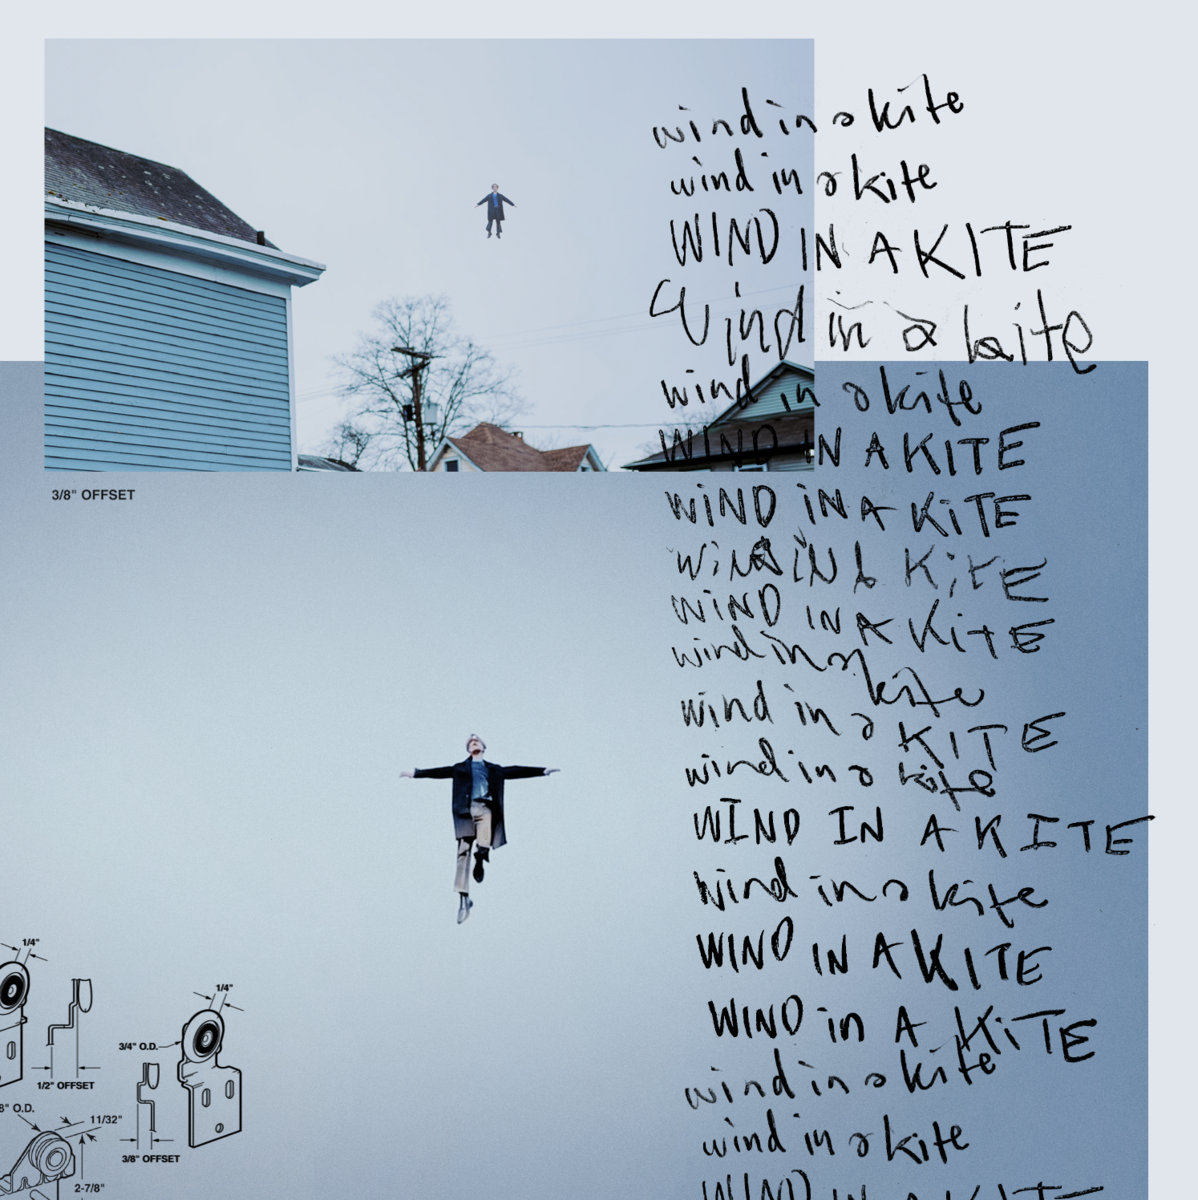 wind in a kite
wind in a kite
WIND IN A KITE
Wind in a kite
wind in a kite
WIND IN A KITE
3/8" OFFSET
WiND iN A KiTE
WiND iN A KiTE
WiND IN A KiTE
wind in a kite
wind in a KITE
wind in a kite
WIND IN A KITE
wind in a kite
WIND IN A KITE
1/4"
1/4"
WIND in A KiTE
3/4" O.D.
wind in a kite
1/2" OFFSET
8" O.D.
11/32"
wind in a kite
3/8" OFFSET
2-7/8"
WIND IN A KITE